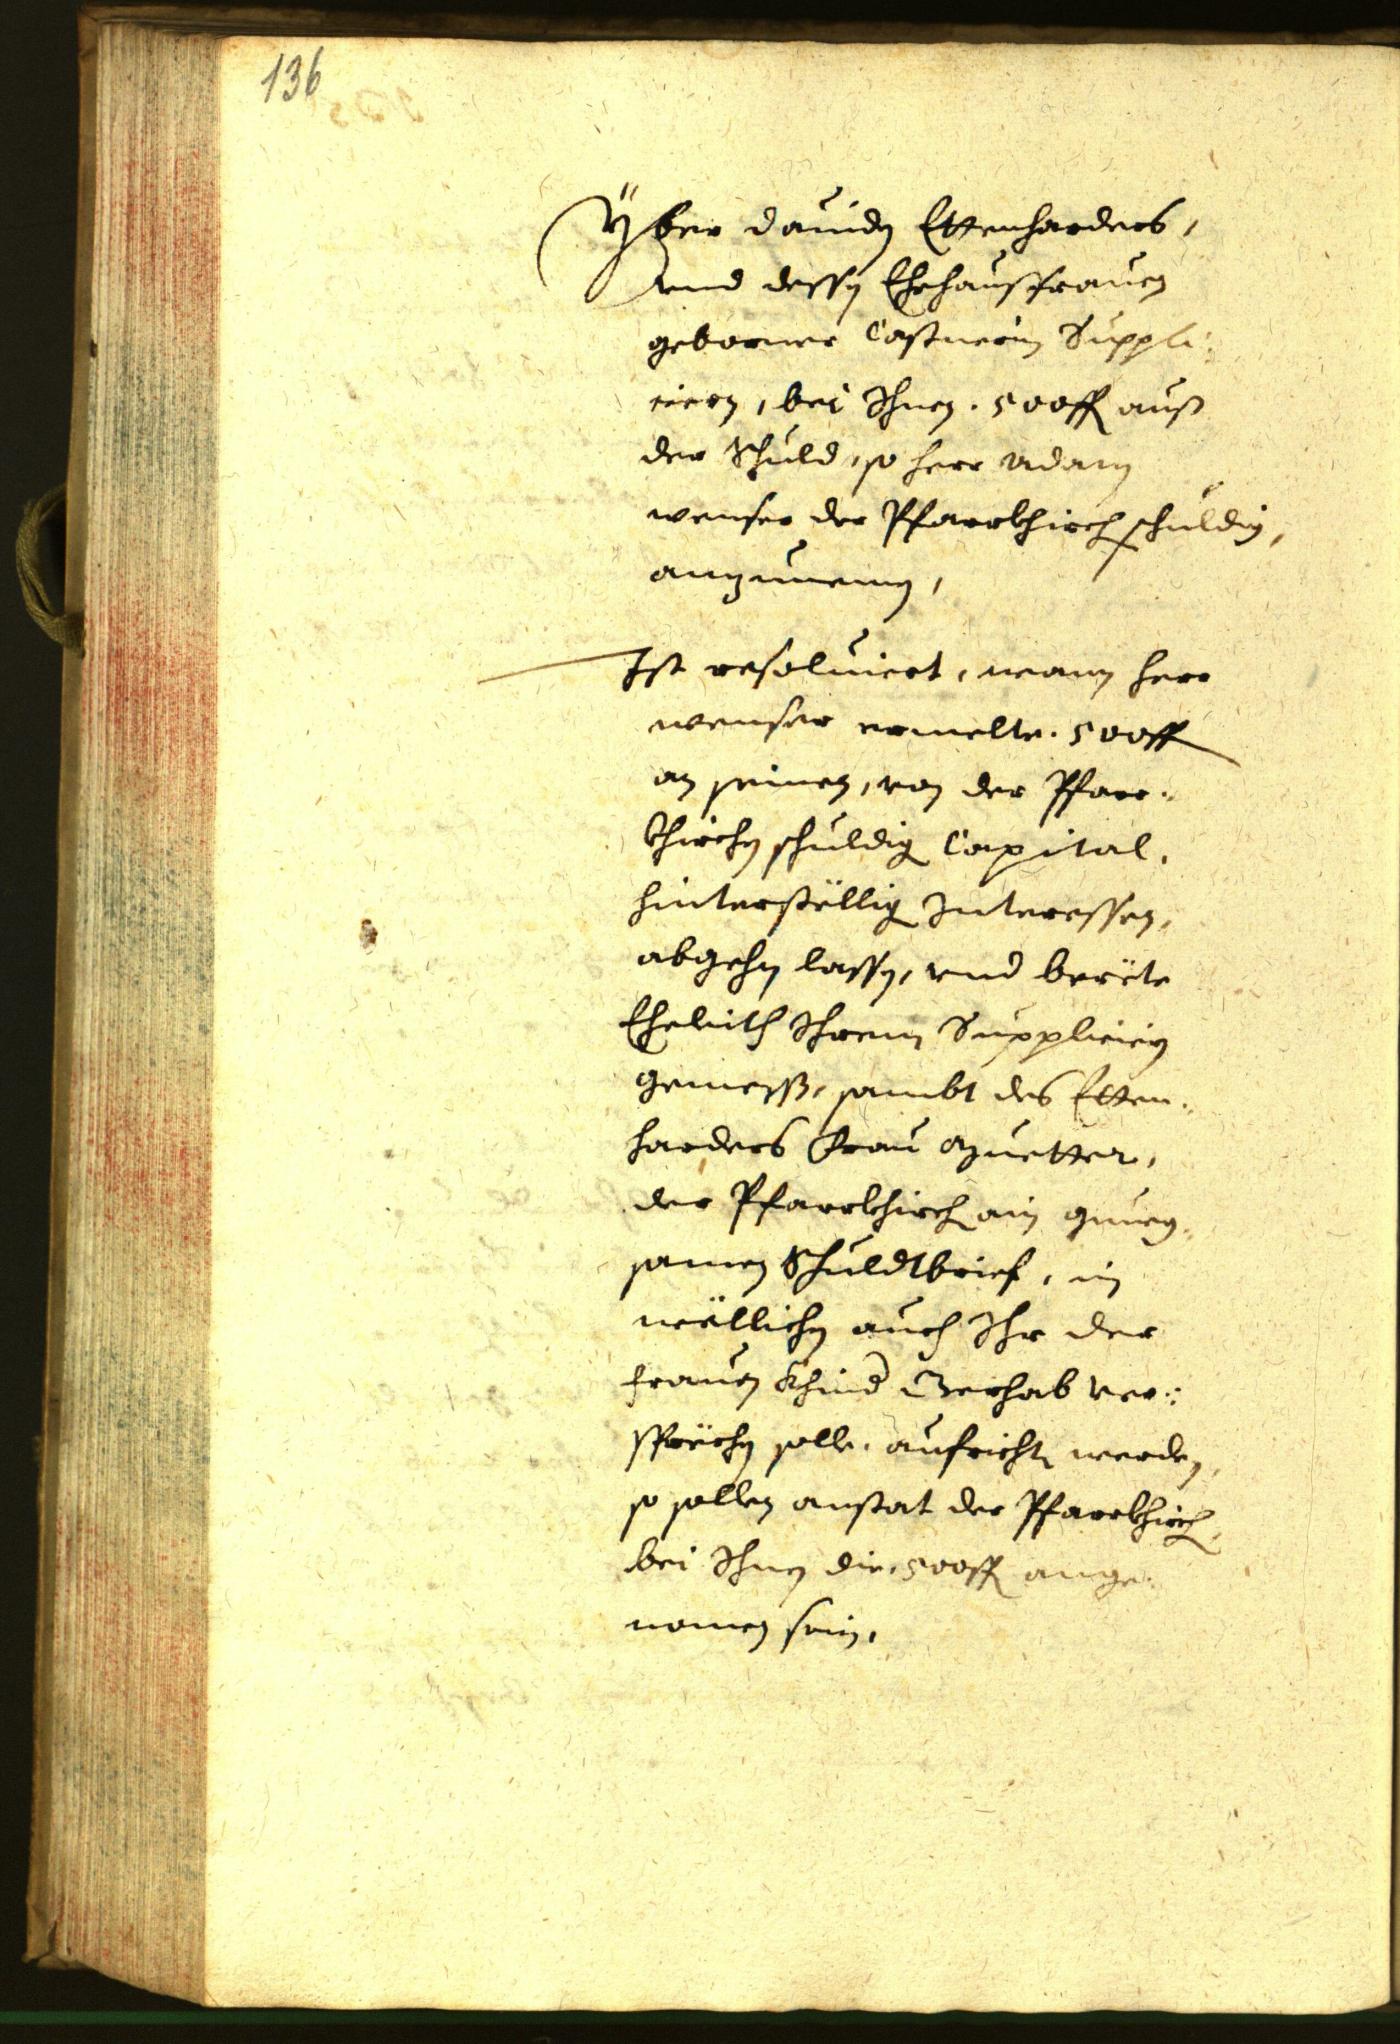 136
Yber Dauiden Ettenharders,
vnd dessen Ehehaußfrauen
geborner Castnerin Suppli¬
cieren, bei Ihnen . 500 fl aus
der Schuld, so herr Adam
wenser der Pfarrkhirch schuldig,
anzunemen,
Ist resoluiert, wann herr
wenser ermelte . 500 fl
an seinen, von der Pfarr¬
khirchen schuldig Capital,
hinterstöllig Interessen,
abgehn lassen, vnd berüete
Eheleith Ihrem Supplicieren
gemeß, sambt des Etten¬
harders Frau Muetter,
der Pfarrkhirch ain gnueg¬
samen Schuldtbrief, in
wellichen auch Ihr der
frauen Khind Gerhab ver¬
sprechen solle, aufricht werden,
so sollen anstat der Pfarrkhirch
bei Ihnen die 500 fl ange¬
nomen sein,